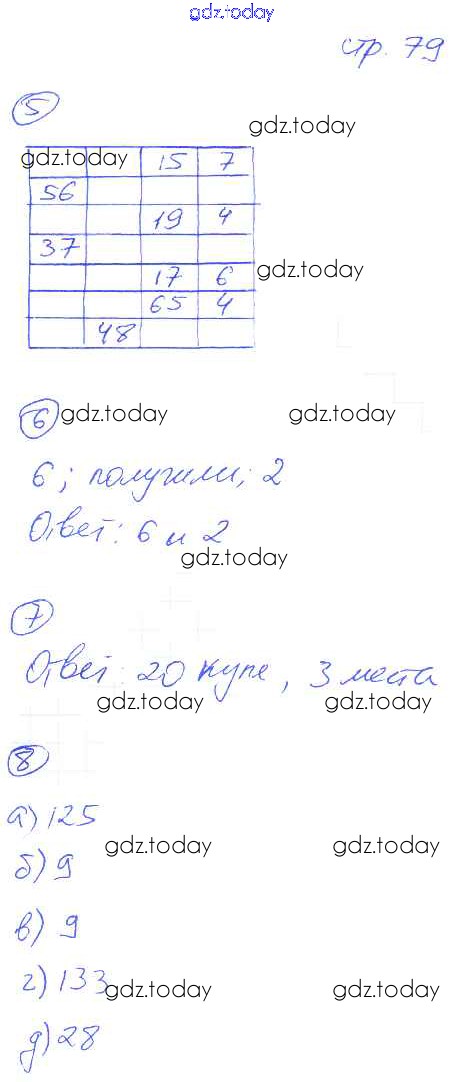 gdz.today
стр. 79
5
gdz.today
gdz.today 15 7
56
19 4
37
17 6 gdz.today
65 4
48
6 gdz.today gdz.today
6; получили; 2
Ответ: 6 и 2
gdz.today
7
Ответ: 20 купе, 3 места
gdz.today gdz.today
8
а) 125
gdz.today gdz.today
б) 9
в) 9
г) 133
gdz.today gdz.today
д) 28